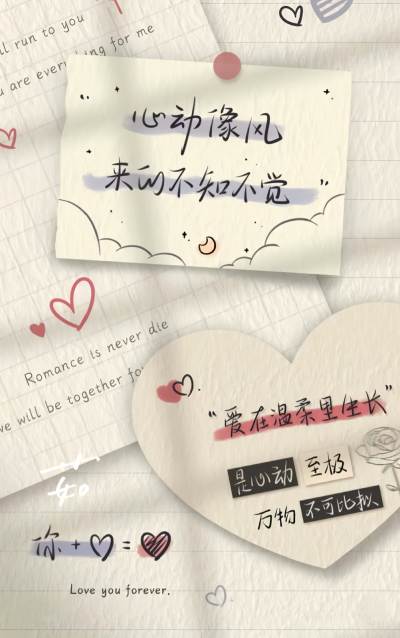 ll run to you
u are everything for me
“心动像风
来的不知不觉”
Romance is never die
we will be together fo
“爱在温柔里生长”
是心动 至极
万物 不可比拟
你 + ♡ = ♥
Love you forever.